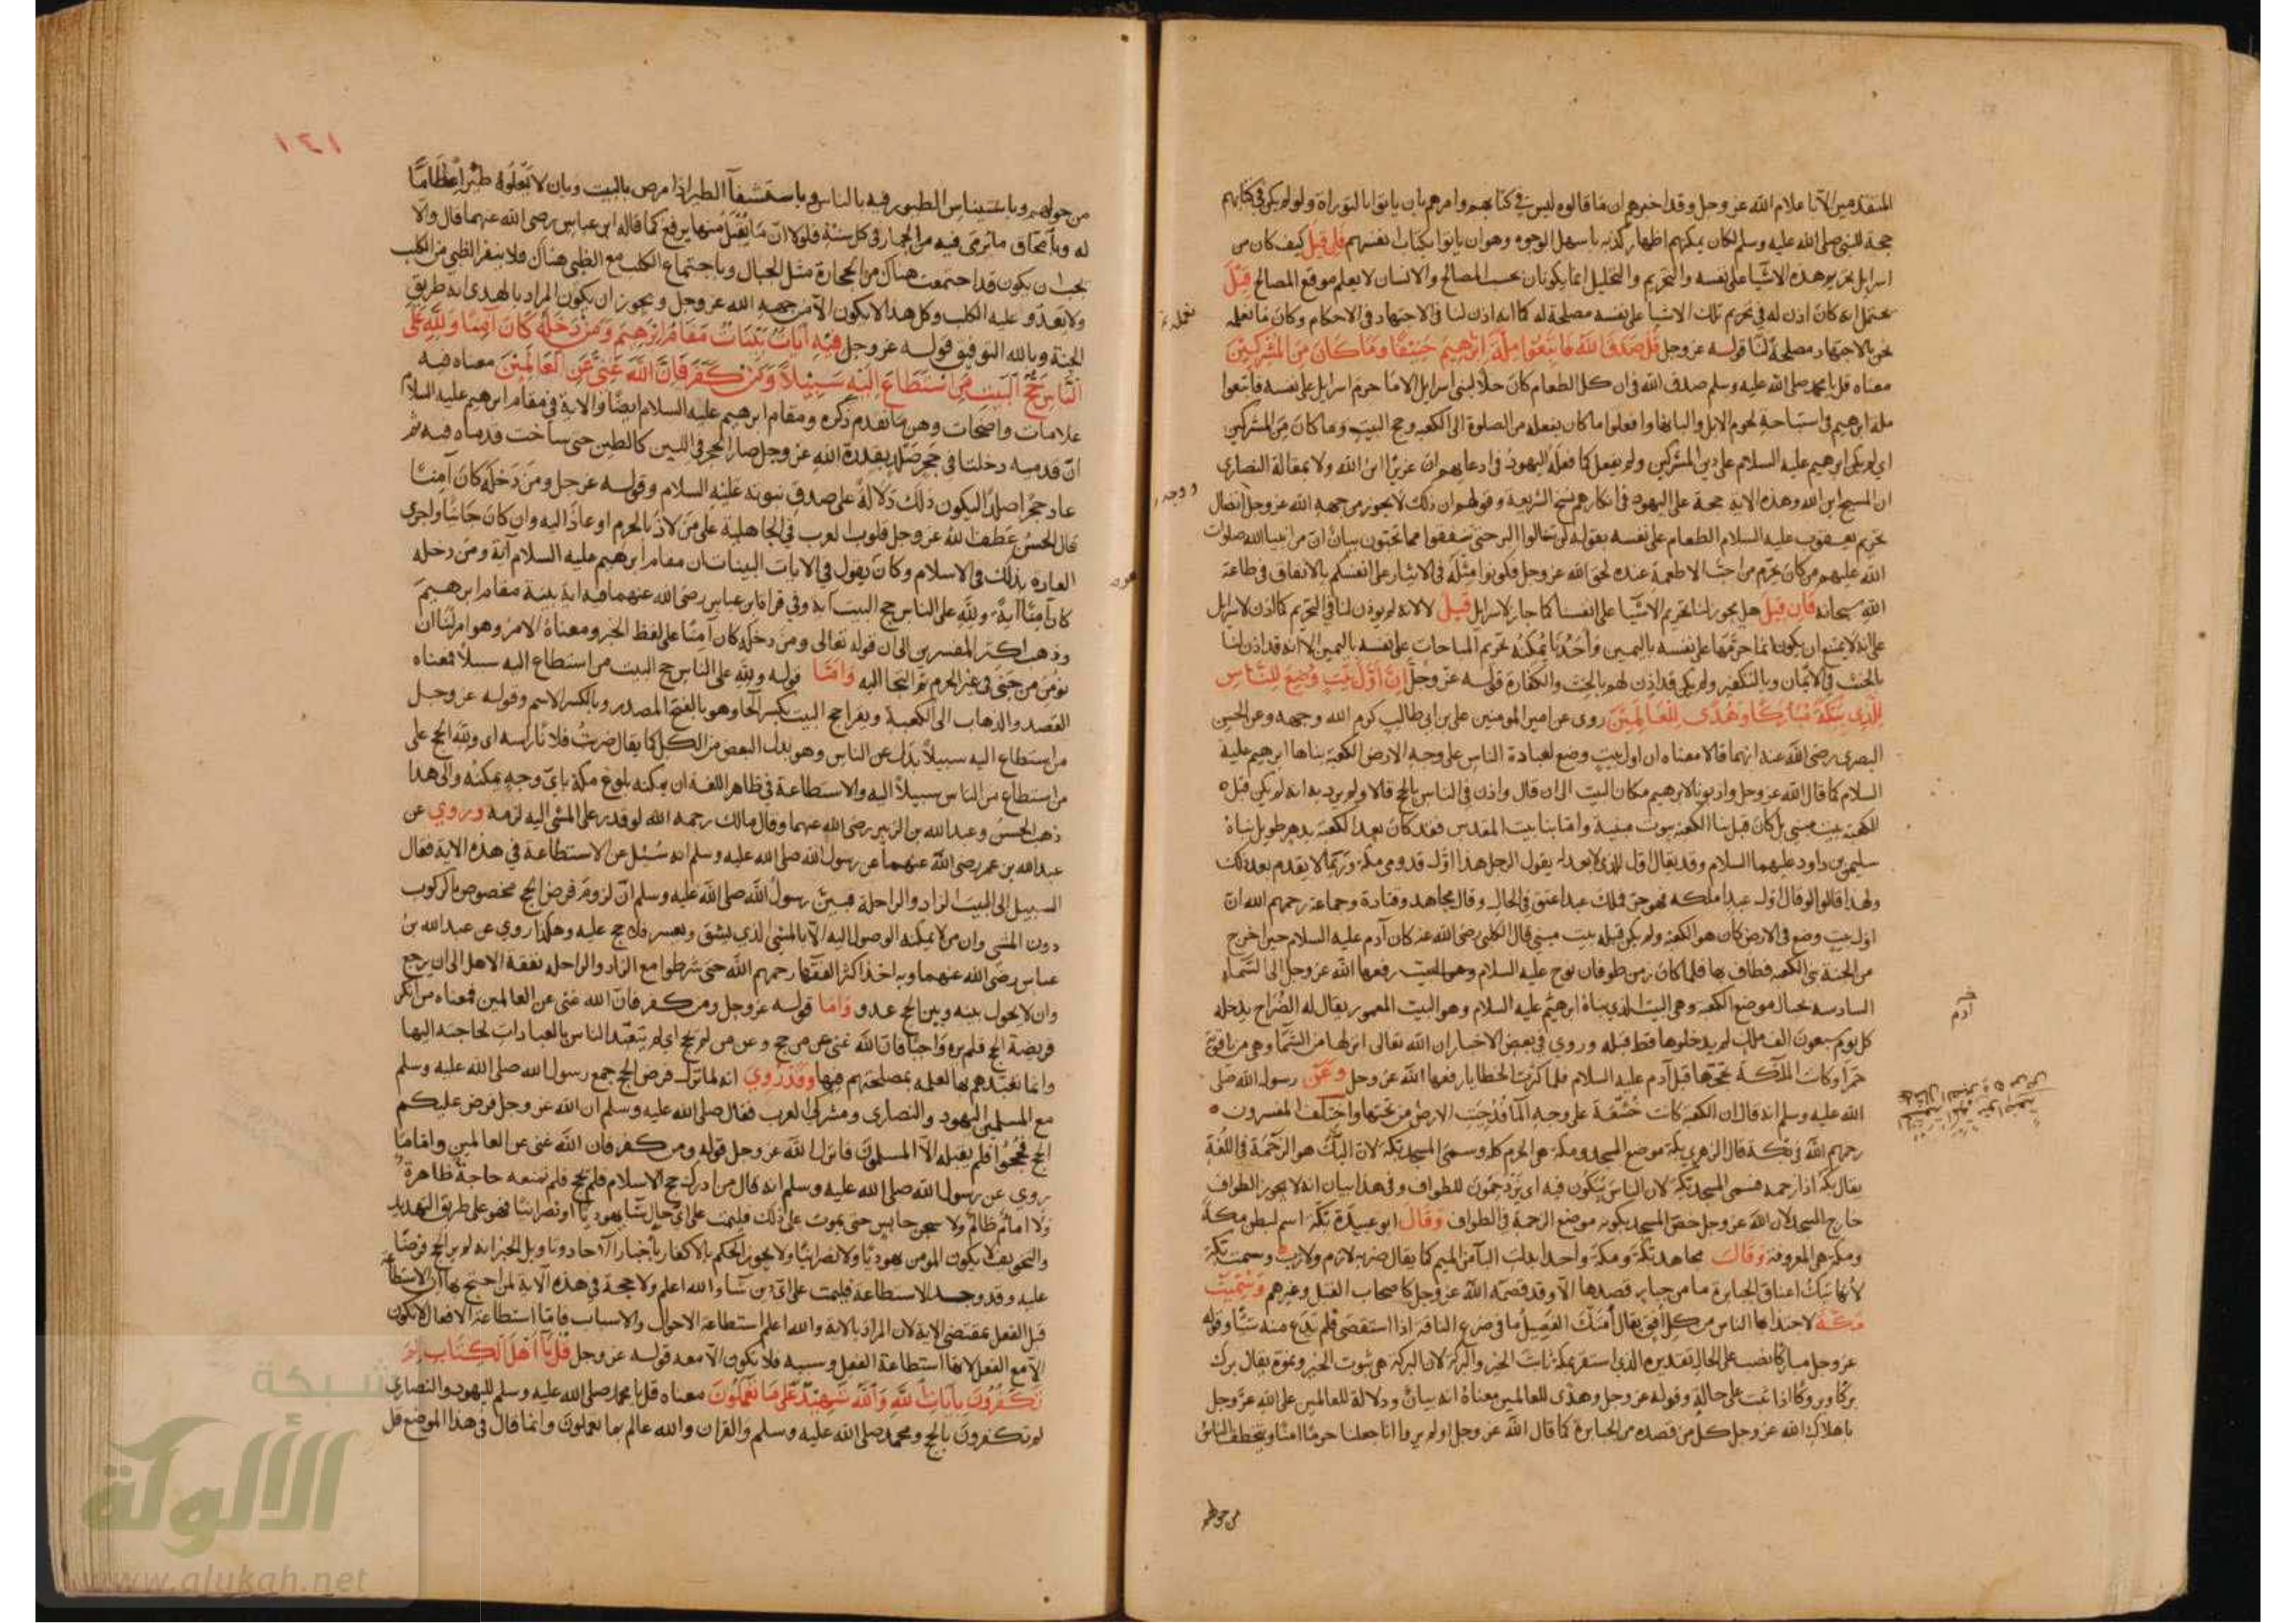 المتقدمين الا باعلام الله عز وجل وقد اخبرهم ان ما قالوه ليس في كتابهم وامرهم بان ياتوا بالتوراة ولو لم يكن في كتابهم
حجة للنبي صلى الله عليه وسلم لكان يمكنهم اظهار كذبه باسهل الوجوه وهو ان ياتوا بكتاب انفسهم فان قيل كيف كان من
اسرايل تحريم هذه الاشيا على نفسه والتحريم والتحليل انما يكونان بحسب المصالح والانسان لا يعلم موقع المصالح قيل
يحتمل انه كان اذن له في تحريم تلك الاشيا على نفسه مصلحة له كما انه اذن لنا في الاجتهاد في الاحكام وكان ما نعلمه
نحن بالاجتهاد مصلحة لنا قوله عز وجل قل صدق الله فاتبعوا ملة ابرهيم حنيفا وما كان من المشركين
معناه قل يا محمد صلى الله عليه وسلم صدق الله في ان كل الطعام كان حلا لبني اسرايل الا ما حرم اسرايل على نفسه فاتبعوا
ملة ابرهيم في استباحة لحوم الابل والبانها وافعلوا ما كان يفعله من الصلوة الى الكعبه وحج البيت وما كان من المشركين
اي لم يكن ابرهيم عليه السلام على دين المشركين ولم يفعل كما فعله اليهود في ادعايهم ان عزيرا ابن الله ولا بمقالة النصارى
ان المسيح ابن الله وهذه الاية حجة على اليهود في انكارهم نسخ الشريعة وقولهم ان ذلك لا يجوز من جهة الله عز وجل اتصال
تحريم يعقوب عليه السلام الطعام على نفسه بقوله لن تنالوا البر حتى تنفقوا مما تحبون بيان ان من انبيا الله صلوات
الله عليهم من كان يحرم من احب الاطعمة عنده لحق الله عز وجل فكونوا مثله في الايثار على انفسكم بالانفاق في طاعة
الله سبحانه فان قيل هل يجوز لنا تحريم الاشيا على انفسنا كما جاز لاسرايل قيل لا لانه لم يوذن لنا في التحريم كما اذن لاسرايل
على انه لا يمتنع ان يكون انما حرمها على نفسه باليمين واحدنا يمكنه تحريم المباحات على نفسه باليمين الا انه قد اذن لنا
بالحنث في الايمان وبالتكفير ولم يكن قد اذن لهم بالحنث والكفارة قوله عز وجل ان اول بيت وضع للناس
للذي ببكة مباركا وهدى للعالمين روي عن امير المومنين علي بن ابي طالب كرم الله وجهه وعن الحسن
البصري رضي الله عنه انهما قالا معناه ان اول بيت وضع لعبادة الناس على وجه الارض الكعبة بناها ابرهيم عليه
السلام كما قال الله عز وجل واذ بوانا لابرهيم مكان البيت الى ان قال واذن في الناس بالحج قالا ولم يرد به انه لم يكن قبل
الكعبة بيت مبني بل كان قبل بنا الكعبة بيوت مبنية واما بنا بيت المقدس فقد كان بعد الكعبة بدهر طويل بناه
سليمن بن داود عليهما السلام وقد يقال اول للذي لا بعد له يقول الرجل هذا اول قدومي مكة وربما لا يقدم بعد ذلك
ولهذا قالوا لو قال اول عبد املكه فهو حر فملك عبدا عتق في الحال وقال مجاهد وقتادة وجماعة رحمهم الله ان
اول بيت وضع في الارض كان هو الكعبة ولم يكن قبله بيت مبني قال الكلبي رضي الله عنه كان آدم عليه السلام حين اخرج
من الجنة بنى الكعبه فطاف بها فلما كان زمن طوفان نوح عليه السلام وهو البيت رفعها الله عز وجل الى السماء
السادسه بحيال موضع الكعبه وهي البيت الذي بناه ابرهيم عليه السلام وهو البيت المعمور يقال له الضراح يدخله
كل يوم سبعون الف ملك لم يدخلوها قط قبله وروي في بعض الاخبار ان الله تعالى انزلها من السما وهي من ياقوتة
حمرا وكانت الملائكة تحجها قبل آدم عليه السلام فلما كثرت الخطايا رفعها الله عز وجل وعن رسول الله صلى
الله عليه وسلم انه قال ان الكعبة كانت خشفة على وجه الما فدحيت الارض من تحتها واختلف المفسرون
رحمهم الله في بكة قال الزهري بكة موضع المسجد ومكة هي الحرم كله وسمي المسجد بكة لان البك هو الزحمة في اللغة
يقال بكه اذا زحمه فسمي المسجد بكة لان الناس يتباكون فيه اي يزدحمون للطواف وفي هذا بيان انه لا يجوز الطواف
خارج المسجد لان الله عز وجل خص المسجد بكونه موضع الزحمة في الطواف وقال ابو عبيدة بكة اسم لبطن مكة
ومكة هي المعروفة وقال مجاهد بكة ومكة واحد ابدلت البآ من الميم كما يقال ضربة لازم ولازب وسميت بكة
لانها تبك اعناق الجبابرة ما من جبار قصدها الا وقد قصمه الله عز وجل كاصحاب الفيل وغيرهم وسميت
مكة لاجتذابها الناس من كل افق يقال امتك الفصيل ما في ضرع الناقة اذا استقصى فلم يدع منه شيئا وقوله
عز وجل مباركا نصب على الحال تقديره الذي استقر ببكة ثابت الخير والبركة لان البركة هي ثبوت الخير ونموه يقال برك
بركا وبروكا اذا ثبت على حاله وقوله عز وجل وهدى للعالمين معناه انه بيان ودلالة للعالمين على الله عز وجل
باهلاك الله عز وجل كل من قصده من الجبابرة كما قال الله عز وجل اولم يروا انا جعلنا حرما امنا ويتخطف الناس
من حولهم
آدم
١٤١
من حولهم وباستيناس الطيور فيه بالناس وباستشفآ الطير اذا مرض بالبيت وبان لا تعلوه طير اعظاما
له وبامحاق ما يرمى فيه من الجمار في كل سنة فلولا ان ما يقبل منها يرفع كما قاله ابن عباس رضي الله عنهما قال والا
يجب ان يكون قد اجتمعت هناك من الحجارة مثل الجبال وباجتماع الكلب مع الظبي هناك فلا ينفر الظبي من الكلب
ولا يعدو عليه الكلب وكل هذا لا يكون الا من جهة الله عز وجل ويجوز ان يكون المراد بالهدى انه طريق
الجنة وبالله التوفيق قوله عز وجل فيه ايات بينات مقام ابرهيم ومن دخله كان آمنا ولله على
الناس حج البيت من استطاع اليه سبيلا ومن كفر فان الله غني عن العالمين معناه فيه
علامات واضحات وهن ما تقدم ذكره ومقام ابرهيم عليه السلام ايضا والاية في مقام ابرهيم عليه السلام
ان قدميه دخلتا في حجر صلد بقدرة الله عز وجل صار الحجر في اللين كالطين حتى ساخت قدماه فيه ثم
عاد حجرا صلدا ليكون ذلك دلالة على صدق نبوته عليه السلام وقوله عز وجل ومن دخله كان آمنا
قال الحسن عطف الله عز وجل قلوب العرب في الجاهلية على من لاذ بالحرم او عاذ اليه وان كان جانيا واجرى
العادة بذلك في الاسلام وكان يقول في الايات البينات ان مقام ابرهيم عليه السلام آية ومن دخله
كان آمنا آية ولله على الناس حج البيت آية وفي قراة ابن عباس رضي الله عنهما فيه اية بينة مقام ابرهيم
وذهب اكثر المفسرين الى ان قوله تعالى ومن دخله كان آمنا على لفظ الخبر ومعناه الامر وهو امر لنا ان
نومن من جنى في غير الحرم ثم التجا اليه واما قوله ولله على الناس حج البيت من استطاع اليه سبيلا فمعناه
القصد والذهاب الى الكعبة ويقرا حج البيت بكسر الحآ وهو بالفتح المصدر وبالكسر الاسم وقوله عز وجل
من استطاع اليه سبيلا بدل عن الناس وهو بدل البعض من الكل كما يقال ضربت فلانا راسه اي ولله الحج على
من استطاع من الناس سبيلا اليه والاستطاعة في ظاهر اللغة ان يمكنه بلوغ مكة باي وجه يمكنه والى هذا
ذهب الحسن وعبد الله بن الزبير رضي الله عنهما وقال مالك رحمه الله لو قدر على المشي اليه لزمه وروي عن
عبد الله بن عمر رضي الله عنهما عن رسول الله صلى الله عليه وسلم انه سئل عن الاستطاعة في هذه الاية فقال
السبيل الى البيت الزاد والراحلة فبين رسول الله صلى الله عليه وسلم ان لزوم فرض الحج مخصوص بالركوب
دون المشي وان من لا يمكنه الوصول اليه الا بالمشي الذي يشق ويعسر فلا حج عليه وهكذا روي عن عبد الله بن
عباس رضي الله عنهما وبه اخذ اكثر الفقها رحمهم الله حتى شرطوا مع الزاد والراحلة نفقة الاهل الى ان يرجع
وان لا يحول بينه وبين الحج عدو واما قوله عز وجل ومن كفر فان الله غني عن العالمين فمعناه من انكر
فريضة الحج فلم يره واجبا فان الله غني عن من حج وعن من لم يحج اي لم يتعبد الناس بالعبادات لحاجته اليها
وانما تعبدهم بها لعلمه بمصلحتهم فيها وقد روي انه لما نزل فرض الحج جمع رسول الله صلى الله عليه وسلم
مع المسلمين اليهود والنصارى ومشركي العرب فقال صلى الله عليه وسلم ان الله عز وجل فرض عليكم
الحج فحجوا فلم يقبله الا المسلمون فانزل الله عز وجل قوله ومن كفر فان الله غني عن العالمين واما ما
روي عن رسول الله صلى الله عليه وسلم انه قال من ادرك حج الاسلام فلم يحج فلم تمنعه حاجة ظاهرة
ولا امام ظالم ولا سجن حابس حتى يموت على ذلك فليمت على اي حال شا يهوديا او نصرانيا فهو على طريق التهديد
والتخويف لا يكون المومن يهوديا ولا نصرانيا ولا يجوز الحكم بالاكفار باخبار الآحاد وتاويل الخبر انه لم ير الحج فرضا
عليه وقد وجد الاستطاعة فليمت على اي دين شآ والله اعلم ولا حجة في هذه الآية لمن احتج بها ان الاستطاعة
قبل الفعل بمقتضى الاية لان المراد بالاية والله اعلم استطاعة الاحوال والاسباب فاما استطاعة الافعال لا تكون
الا مع الفعل لانها استطاعة الفعل وسببه فلا تكون الا معه قوله عز وجل قل يا اهل الكتاب لم
تكفرون بايات الله والله شهيد على ما تعملون معناه قل يا محمد صلى الله عليه وسلم لليهود والنصارى
لم تكفرون بالحج ومحمد صلى الله عليه وسلم والقران والله عالم بما تعملون وانما قال في هذا الموضع قل
شبكة
الألوكة
www.alukah.net